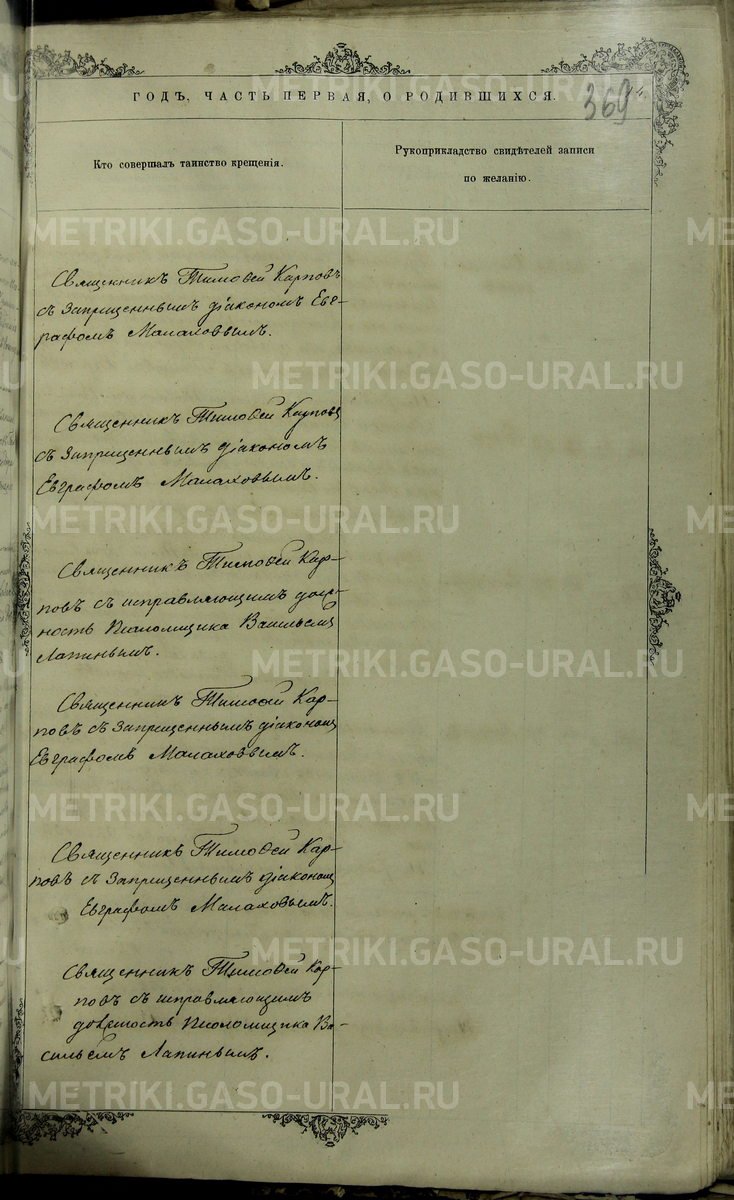 ГОДЪ, ЧАСТЬ ПЕРВАЯ, О РОДИВШИХСЯ.
369
Кто совершалъ таинство крещенія.
Рукоприкладство свидѣтелей записи
по желанію.
Священникъ Тимоѳей Карповъ
съ запрещеннымъ діакономъ Ев-
графомъ Малаховымъ.
Священникъ Тимоѳей Карповъ
съ запрещеннымъ діакономъ
Евграфомъ Малаховымъ.
Священникъ Тимоѳей Кар-
повъ съ исправляющимъ долж-
ность Псаломщика Васильемъ
Лапинымъ.
Священникъ Тимоѳей Кар-
повъ съ запрещеннымъ діакономъ
Евграфомъ Малаховымъ.
Священникъ Тимоѳей Кар-
повъ съ запрещеннымъ діакономъ
Евграфомъ Малаховымъ.
Священникъ Тимоѳей Кар-
повъ съ исправляющимъ
должность Псаломщика Ва-
сильемъ Лапинымъ.
METRIKI.GASO-URAL.RU